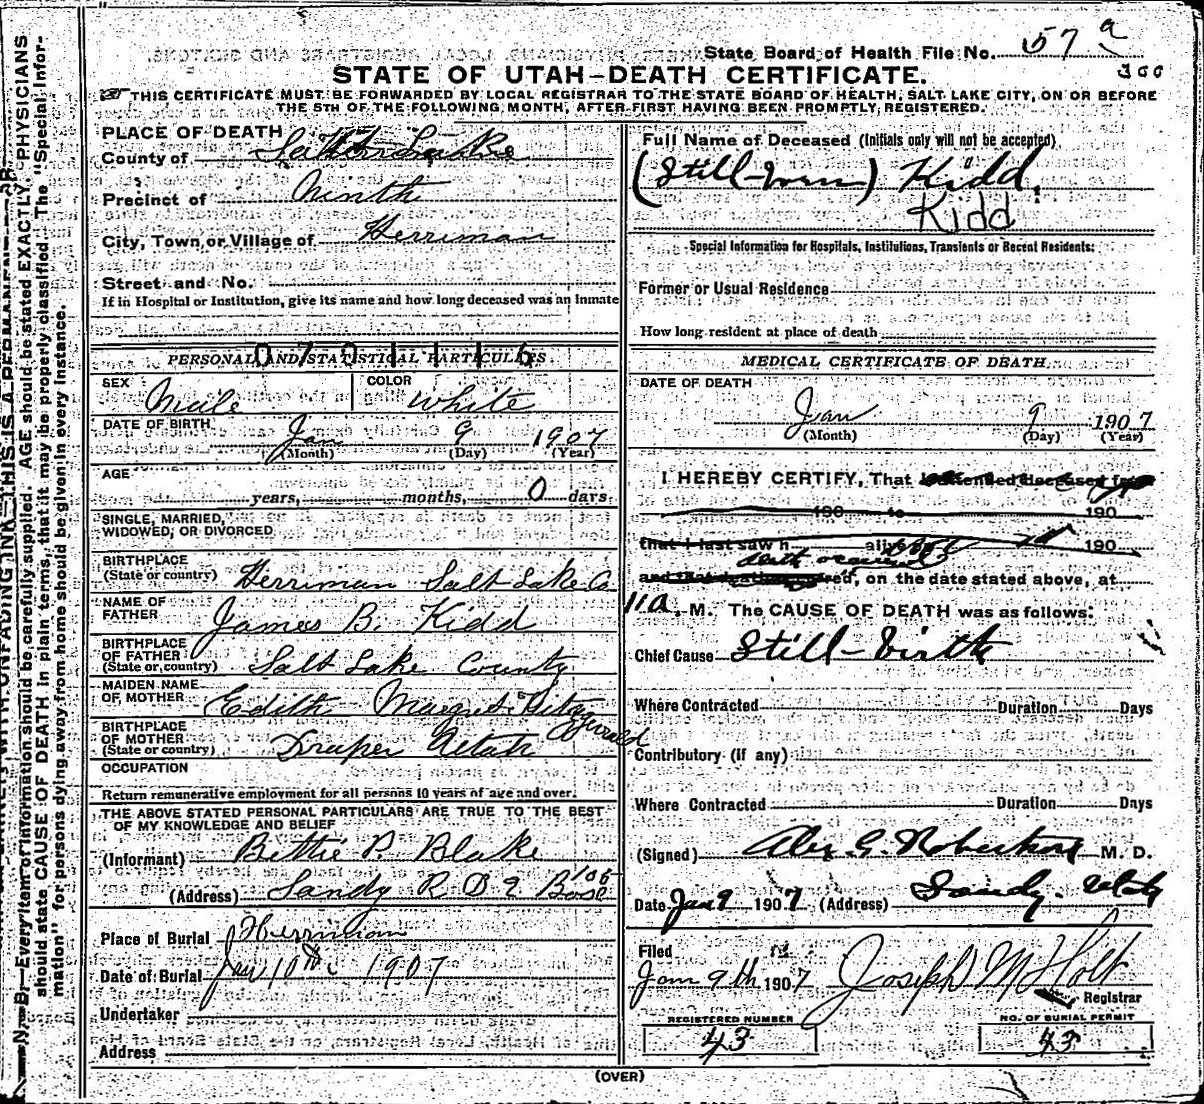 State Board of Health File No. 57 a
300
STATE OF UTAH—DEATH CERTIFICATE.
THIS CERTIFICATE MUST BE FORWARDED BY LOCAL REGISTRAR TO THE STATE BOARD OF HEALTH, SALT LAKE CITY, ON OR BEFORE
THE 5TH OF THE FOLLOWING MONTH, AFTER FIRST HAVING BEEN PROMPTLY REGISTERED.
PLACE OF DEATH
County of Salt Lake
Precinct of Ninth
City, Town or Village of Herriman
Street and No.
If in Hospital or Institution, give its name and how long deceased was an inmate
PERSONAL AND STATISTICAL PARTICULARS.
SEX Male COLOR White
DATE OF BIRTH Jan 9 1907
(Month) (Day) (Year)
AGE
years, months, 0 days
SINGLE, MARRIED,
WIDOWED, OR DIVORCED
BIRTHPLACE
(State or country) Herriman Salt Lake Co
NAME OF
FATHER James B. Kidd
BIRTHPLACE
OF FATHER
(State or country) Salt Lake County
MAIDEN NAME
OF MOTHER Edith Margret Fitzgerald
BIRTHPLACE
OF MOTHER
(State or country) Draper Utah
OCCUPATION
Return remunerative employment for all persons 10 years of age and over.
THE ABOVE STATED PERSONAL PARTICULARS ARE TRUE TO THE BEST
OF MY KNOWLEDGE AND BELIEF
(Informant) Bettie P. Blake
(Address) Sandy R D 2 Box 106
Place of Burial Herriman
Date of Burial Jan 10th 1907
Undertaker
Address
Full Name of Deceased (Initials only will not be accepted)
(Still-born) Kidd.
Kidd
Special Information for Hospitals, Institutions, Transients or Recent Residents:
Former or Usual Residence
How long resident at place of death
MEDICAL CERTIFICATE OF DEATH.
DATE OF DEATH
Jan 9 1907
(Month) (Day) (Year)
I HEREBY CERTIFY, That I attended deceased from
190 to 190
that I last saw h alive 190
death occurred
and that death occurred, on the date stated above, at
11 a. M. The CAUSE OF DEATH was as follows:
Chief Cause Still-birth
Where Contracted Duration Days
Contributory (if any)
Where Contracted Duration Days
(Signed) Alex. G. Robertson M. D.
Date Jan 9 1907 (Address) Sandy. Utah
Filed
Jan 9th 1907 Joseph M Holt
Registrar
REGISTERED NUMBER
43
NO. OF BURIAL PERMIT
43
(OVER)
N. B.—Every item of information should be carefully supplied. AGE should be stated EXACTLY. PHYSICIANS
should state CAUSE OF DEATH in plain terms, that it may be properly classified. The "Special Infor-
mation" for persons dying away from home should be given in every instance.